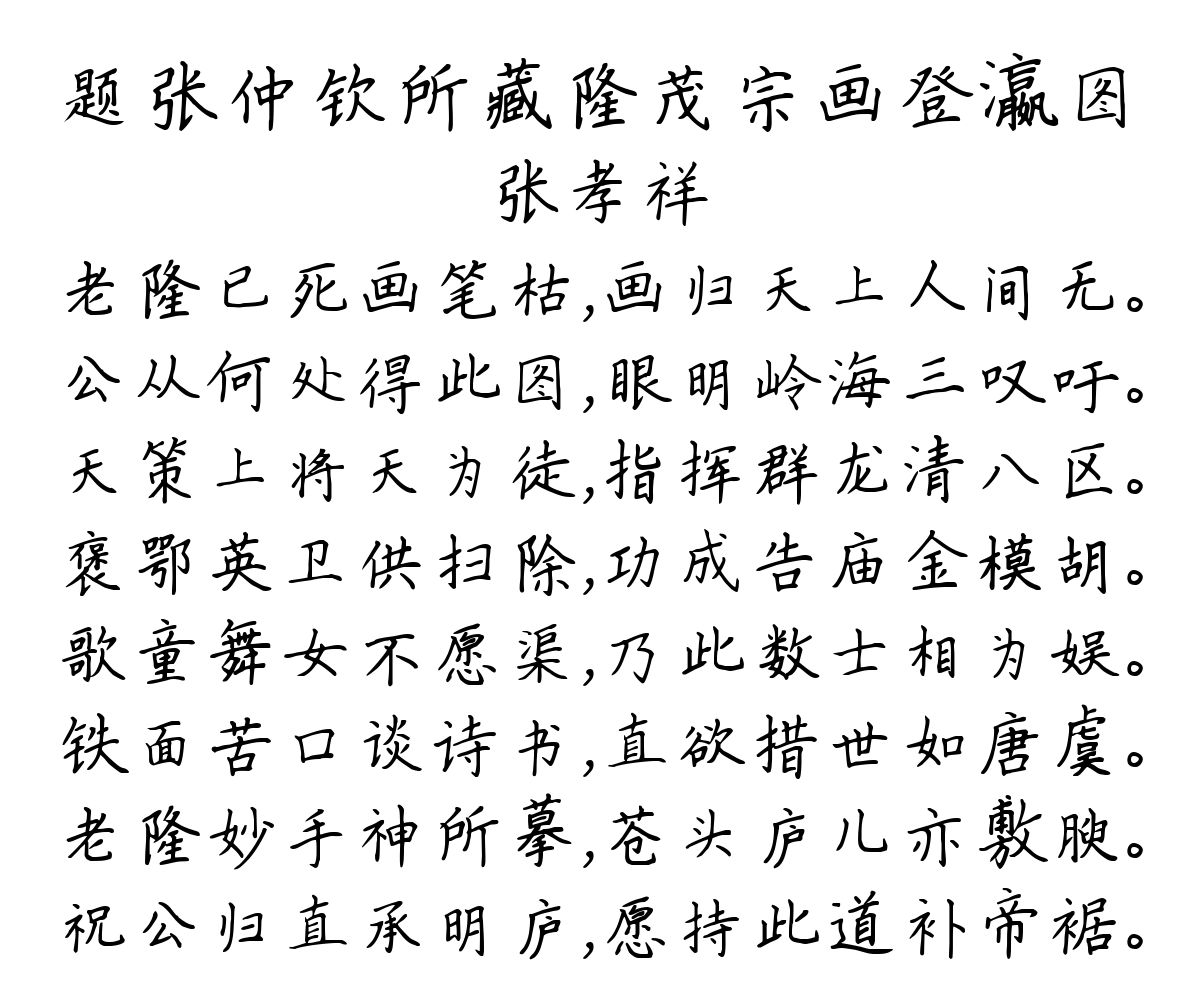 题张仲钦所藏隆茂宗画登瀛图
张孝祥
老隆已死画笔枯,画归天上人间无。
公从何处得此图,眼明岭海三叹吁。
天策上将天为徒,指挥群龙清八区。
褒鄂英卫供扫除,功成告庙金模胡。
歌童舞女不愿渠,乃此数士相为娱。
铁面苦口谈诗书,直欲措世如唐虞。
老隆妙手神所摹,苍头庐儿亦敷腴。
祝公归直承明庐,愿持此道补帝裾。